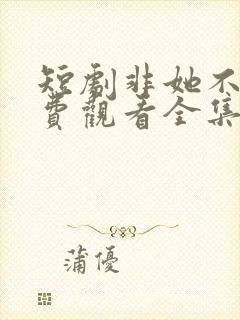 短劇非她不
費觀看全集
蒲優